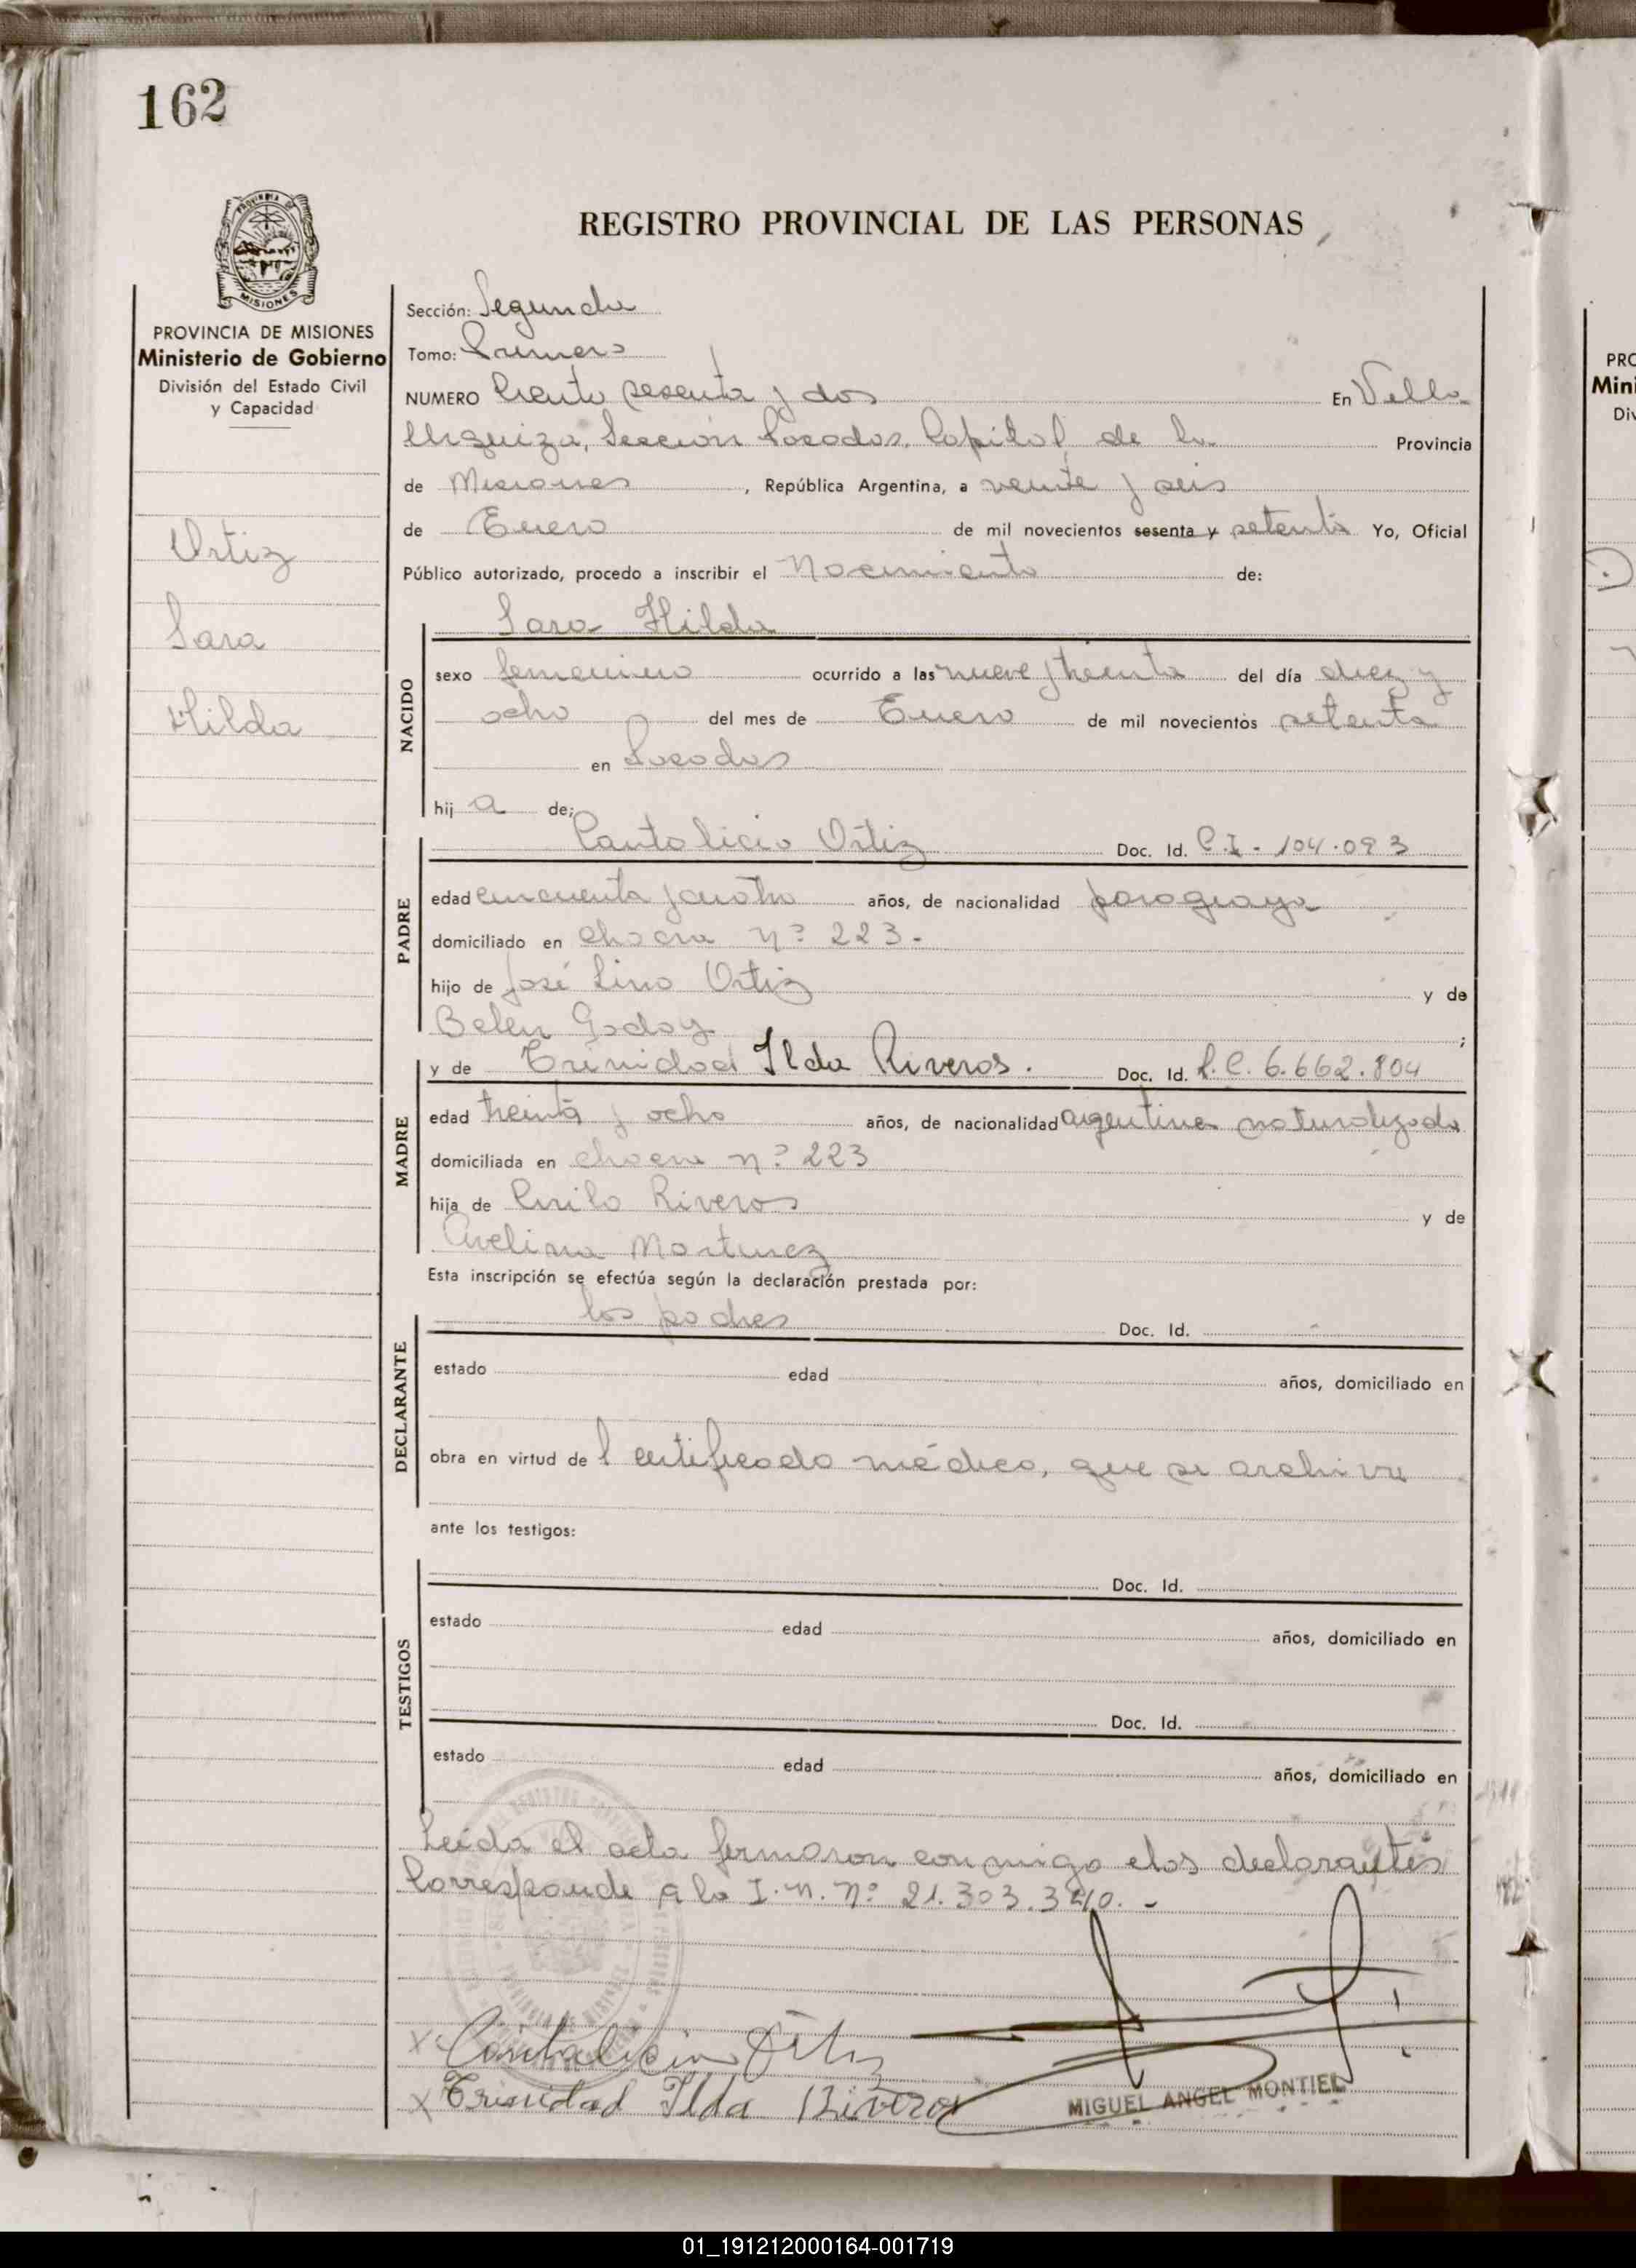 162
REGISTRO PROVINCIAL DE LAS PERSONAS
PROVINCIA DE MISIONES
MISIONES
PROVINCIA DE MISIONES
Ministerio de Gobierno
División del Estado Civil
y Capacidad
Ortiz
Sara
Hilda
Sección: Segunda
Tomo: Primero
NUMERO Ciento sesenta y dos En Villa
Urquiza, Sección Posadas, Capital de la Provincia
de Misiones, República Argentina, a veinte y seis
de Enero de mil novecientos sesenta y setenta Yo, Oficial
Público autorizado, procedo a inscribir el Nacimiento de:
NACIDO
Sara Hilda
sexo femenino ocurrido a las nueve y treinta del día diez y
ocho del mes de Enero de mil novecientos setenta
en Posadas
hij a de;
PADRE
Cantalicio Ortiz Doc. Id. C.I - 104.093
edad cincuenta y cuatro años, de nacionalidad paraguaya
domiciliado en chacra nº 223.
hijo de José Lino Ortiz y de
Belen Godoy ;
MADRE
y de Trinidad Ilda Riveros. Doc. Id. L.C. 6.662.804
edad treinta y ocho años, de nacionalidad argentina naturalizada
domiciliada en chacra nº 223
hija de Cirilo Riveros y de
Avelina Martinez
Esta inscripción se efectúa según la declaración prestada por:
DECLARANTE
los padres Doc. Id. -
estado edad años, domiciliado en
obra en virtud de l certificado médico, que se archiva
ante los testigos:
TESTIGOS
Doc. Id.
estado edad años, domiciliado en
Doc. Id.
estado edad años, domiciliado en
Leída el acta firmaron conmigo los declarantes
Corresponde a la I.M. Nº 21.303.340. -
x Cantalicio Ortiz
x Trinidad Ilda Riveros
MIGUEL ANGEL MONTIEL
PRO
Mini
Div
01_191212000164-001719